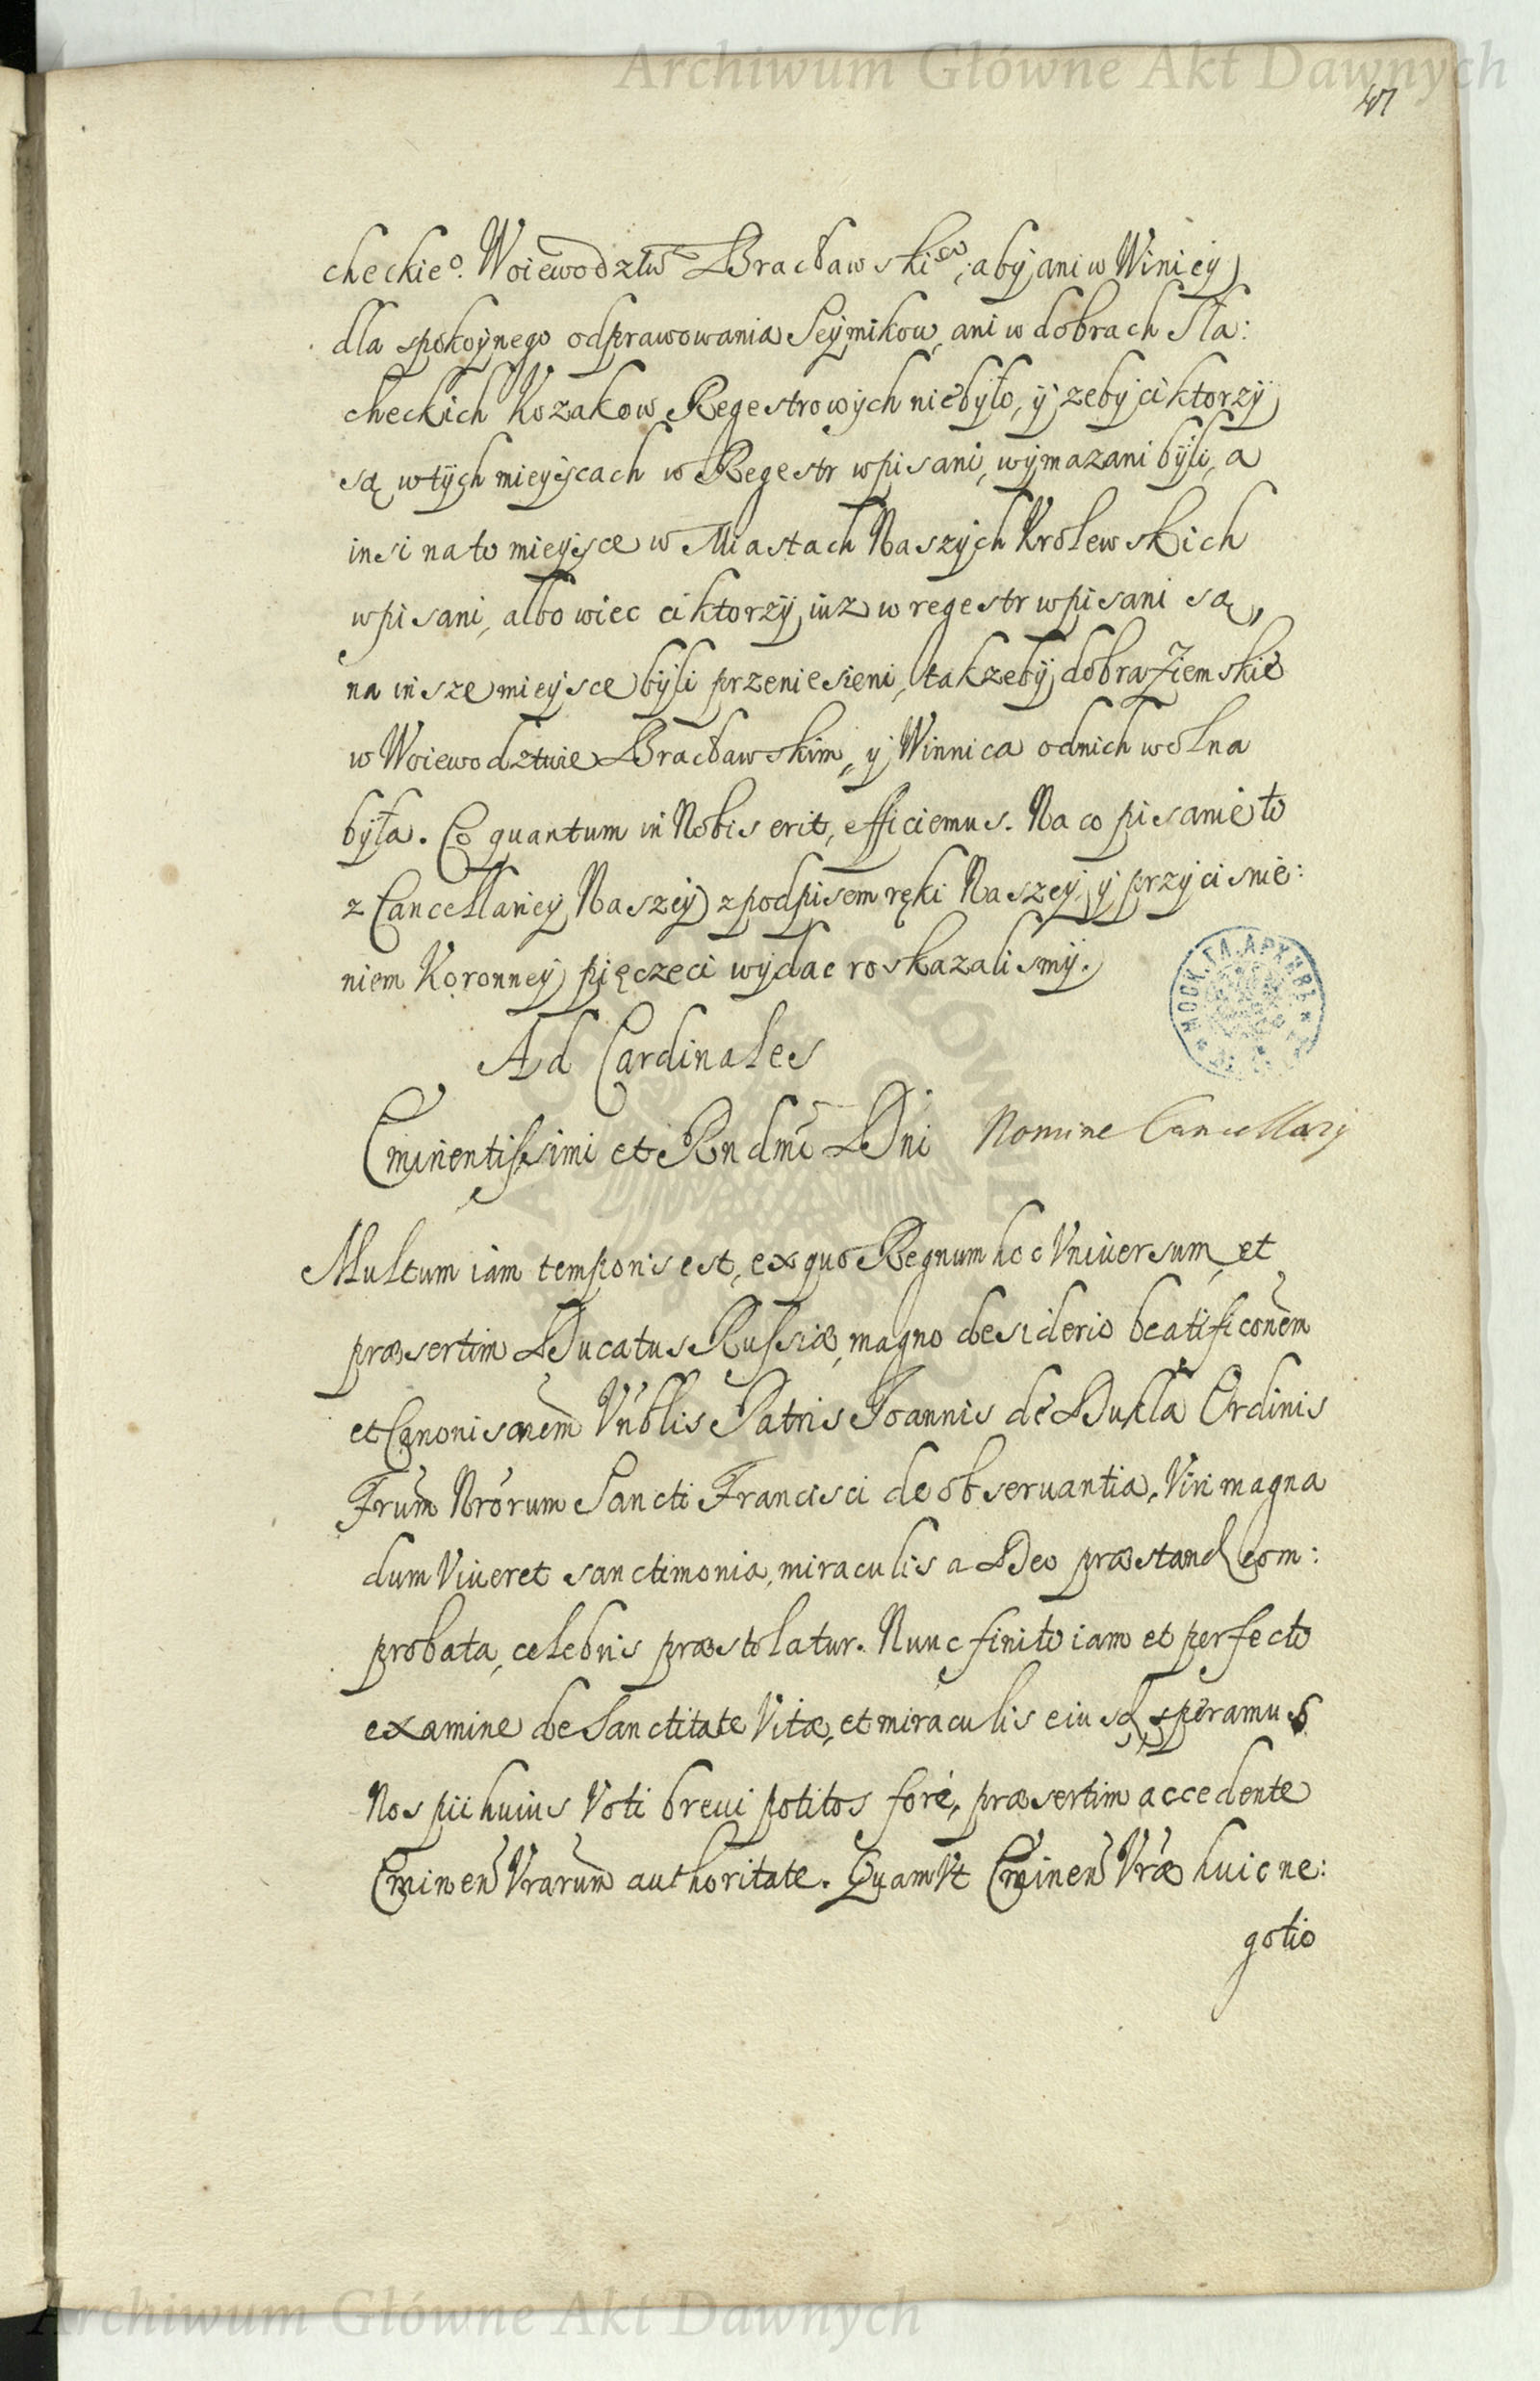 Archiwum Główne Akt Dawnych
47
checkieº. Woiewodztwᵃ Bracławskiᵉᵍᵒ, aby ani w Winicy
dla spokoynego odprawowania Seymikow, ani w dobrach Sla:
checkich Kozakow Regestrowych niebyło, y zeby ci ktorzy
są w tych mieyscach w Regestr wpisani, wymazani byli, a
insi na to mieysce w Miastach Naszych Krolewskich
wpisani, albo wiec ci ktorzy iuz w regestr wpisani są,
na insze mieysce byli przeniesieni, tak zeby dobra Ziemskie
w Woiewodztwie Bracławskim, y Winnica od nich wolna
była. Co quantum in Nobis erit, efficiemus. Na co pisanie to
z Cancellariey Naszey z podpisem ręki Naszey, y przycisnie:
niem Koronney pięczeci wydac roskazalismy.
МОСК. ГЛ. АРХИВЪ
Ad Cardinales
Eminentissimi et Rndmi DDni Nomine Cancellarij
Multum iam temporis est, ex quo Regnum hoc Vniuersum, et
præsertim Ducatus Russiæ, magno desiderio beatificonem
et Canonisaonem Vnblis Patris Joannis de Dukla Ordinis
Frum Nrorum Sancti Francisci de obseruantia, Viri magna
dum Viueret sanctimonia, miraculis a Deo præstand com:
probata, celebris præstolatur. Nunc finito iam et perfecto
examine de Sanctitate Vitæ, et miraculis eiusd, speramus
Nos pii huius Voti breui potitos fore, præsertim accedente
Eminen Vrarum authoritate. Quam Vt Eminen Vræ huic ne:
gotio
Archiwum Główne Akt Dawnych